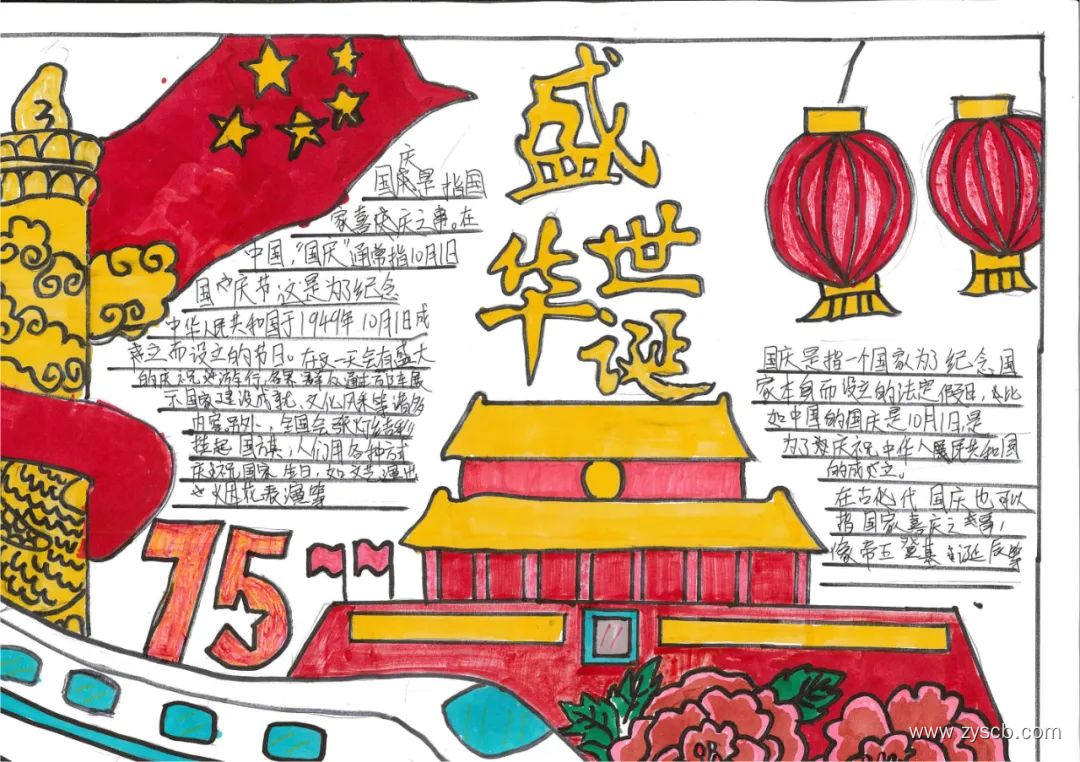 盛
世
华
诞
庆
国庆是指国
家喜庆之事。在
中国，“国庆”通常指10月1日
国庆节，这是为了纪念
中华人民共和国于1949年10月1日成
立而设立的节日。在这一天会有盛大
的庆祝游行，
示国家建设成就、文化风采等诸多
内容。另外，全国会张灯结彩
挂起国旗，人们用各种方式
庆祝国家生日，如文艺演出
火烟花表演等
75
国庆是指一个国家为了纪念国
家本身而设立的法定假日，比
如中国的国庆是10月1日，是
为了庆祝中华人民共和国
的成立。
在古代国庆也可以
指国家喜庆之事，
像帝王登基、诞辰等
www.zyscb.com